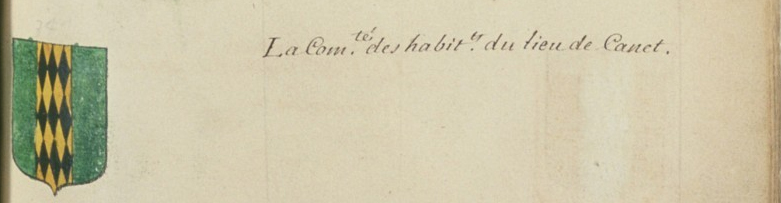 La Com.té des habit.ts du lieu de Canet.